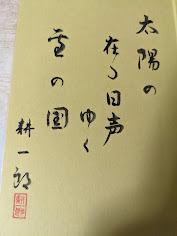 太陽の
在 日声
ゆく
雪の国
耕一郎